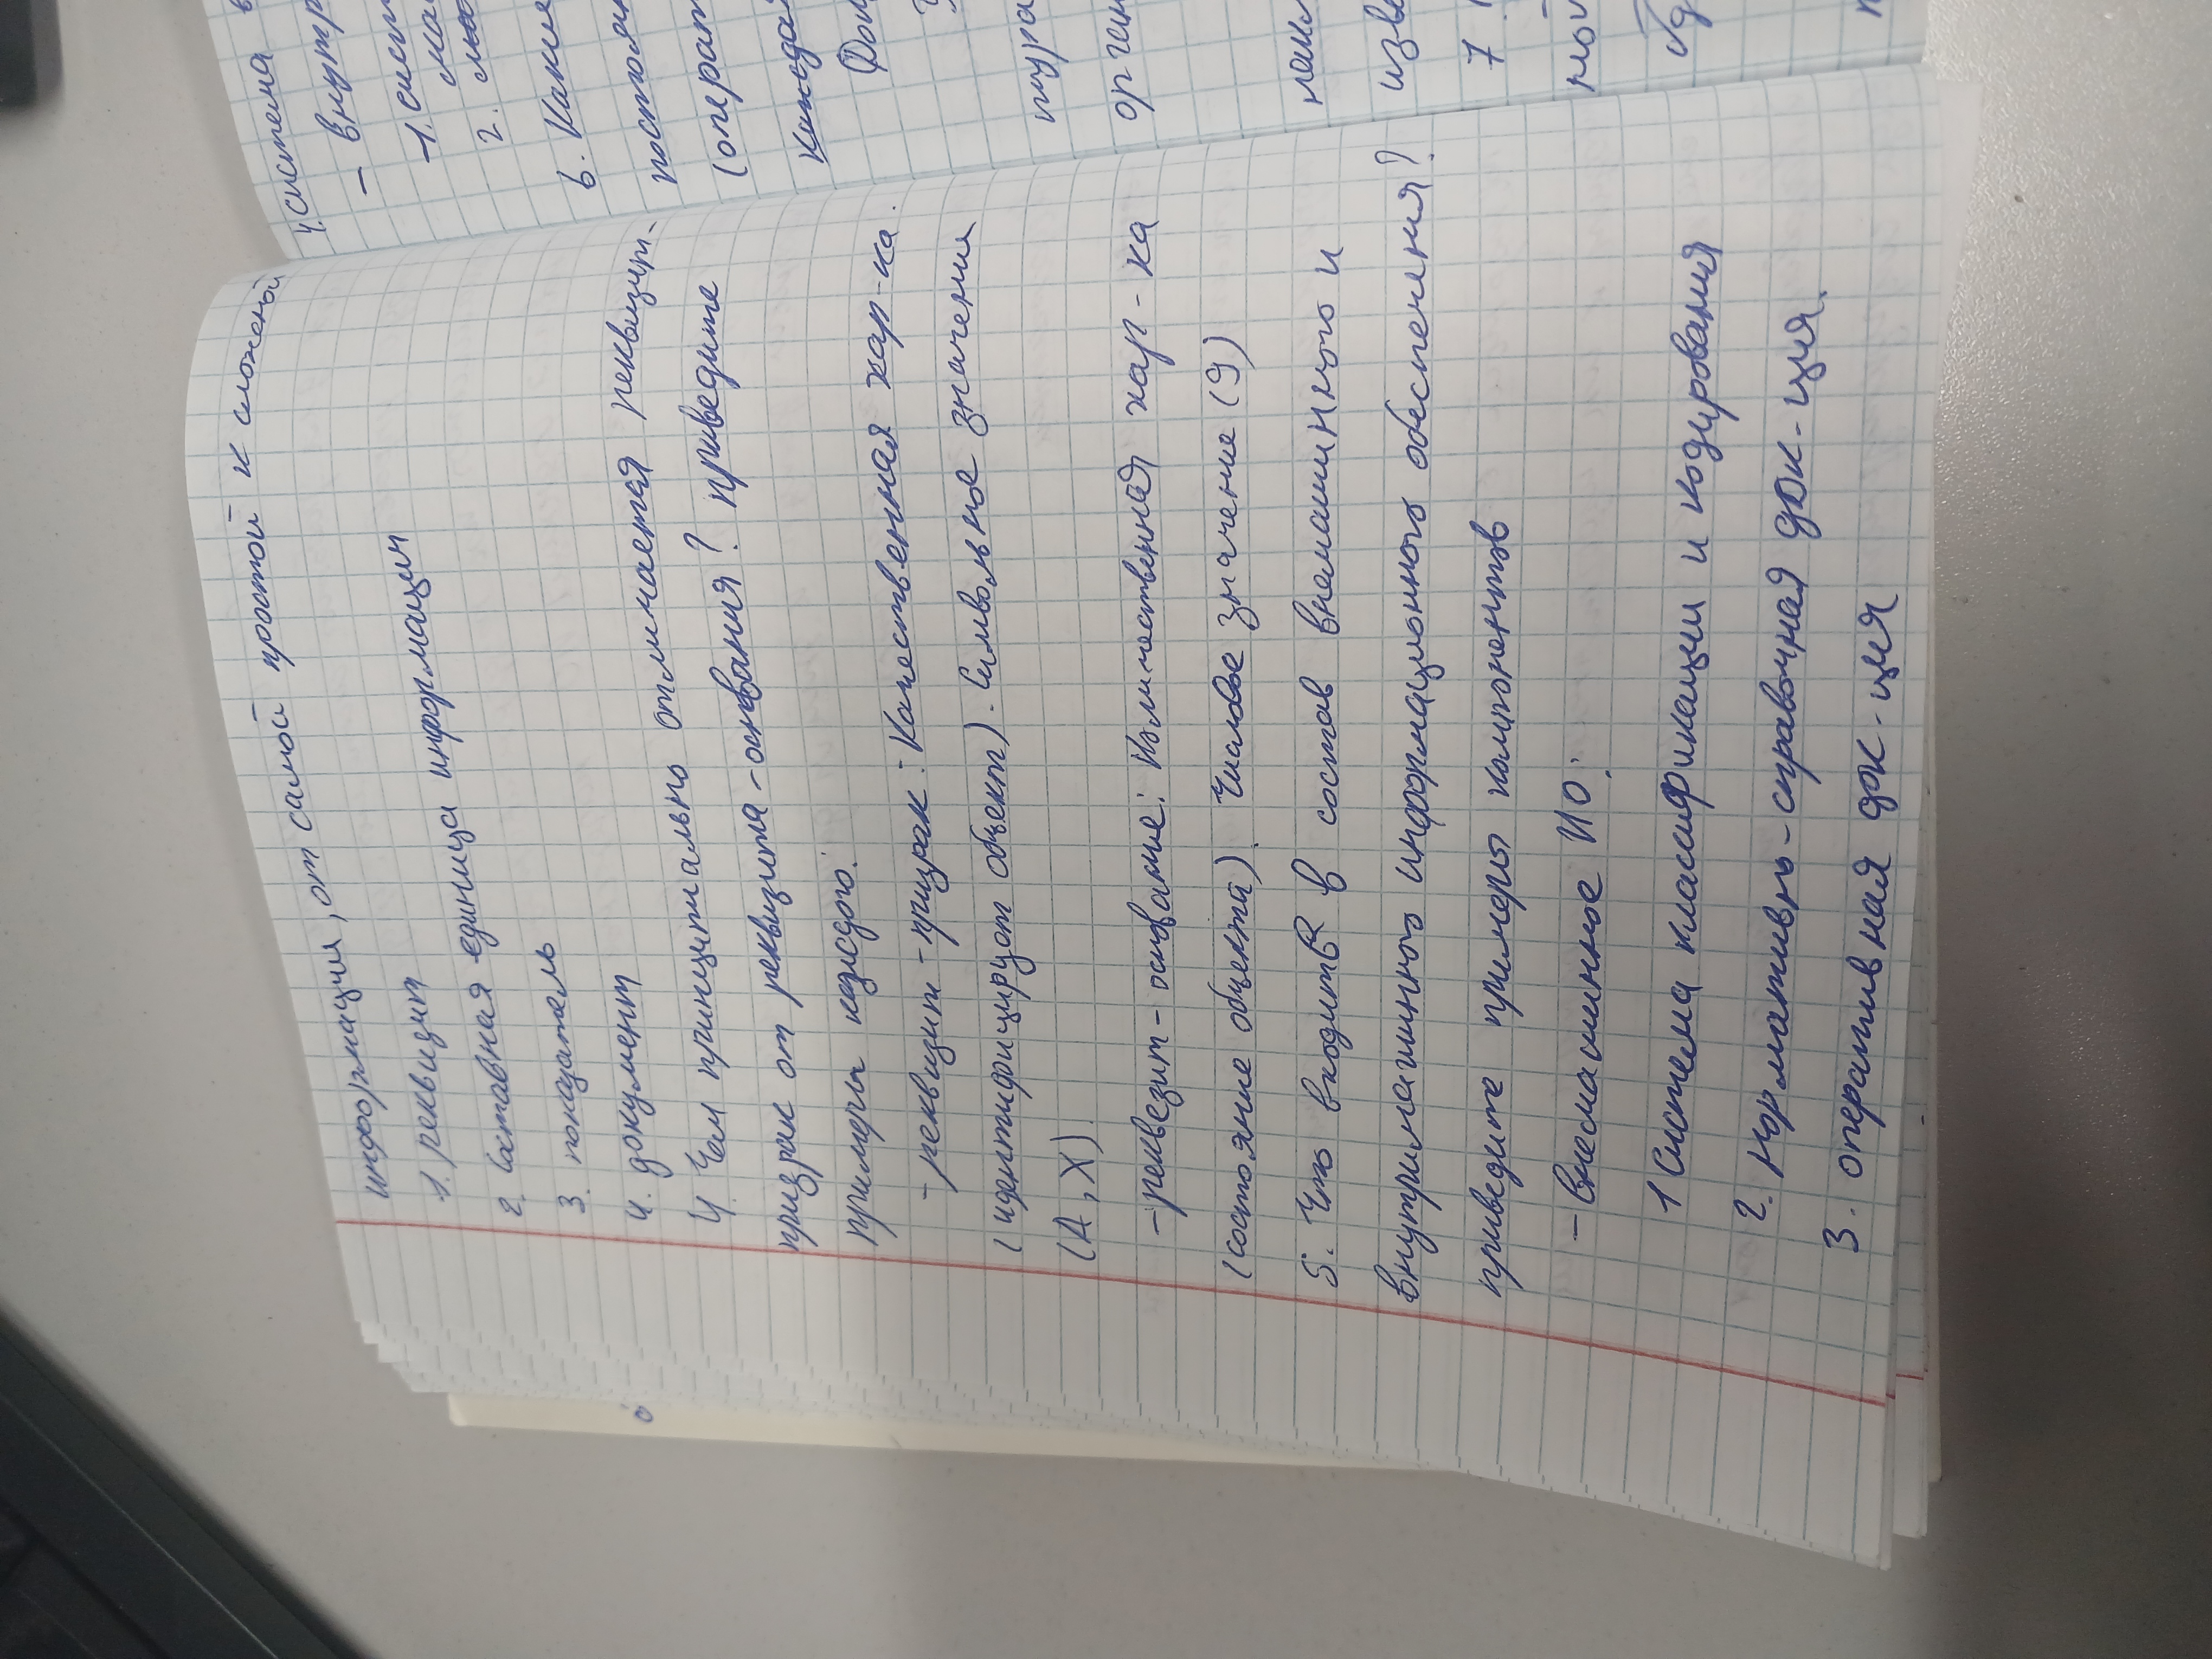 информации, от самой простой к сложной
1. реквизит
2. составная единица информации
3. показатель
4. документ
4. Чем принципиально отличается реквизит-
признак от реквизита-основания? приведите
примеры каждого.
- реквизит-признак: Качественная хар-ка.
(идентифицируют объект). Символьное значение
(А, Х).
- реквезит-основание: Количественная хар-ка
(состояние объекта). Числовое значение (9)
5. Что входит в состав внемашинного и
внутримашинного информационного обеспечения?
приведите примеры компонентов
- Внемашинное ИО:
1 Система классификации и кодирования
2. Нормативнь-справочная док-ция.
3. оперативная док-ция
4. система в
- внутр
1.
2.
6. Какие
постоян
(операт
орган
изве
7.